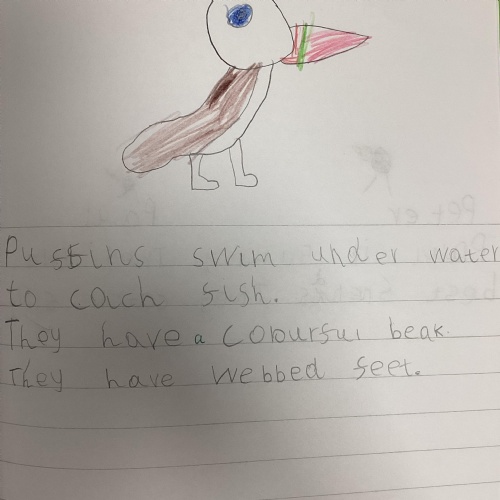 Puffins swim under water
to cach fish.
They have a colourful beak.
They have webbed feet.